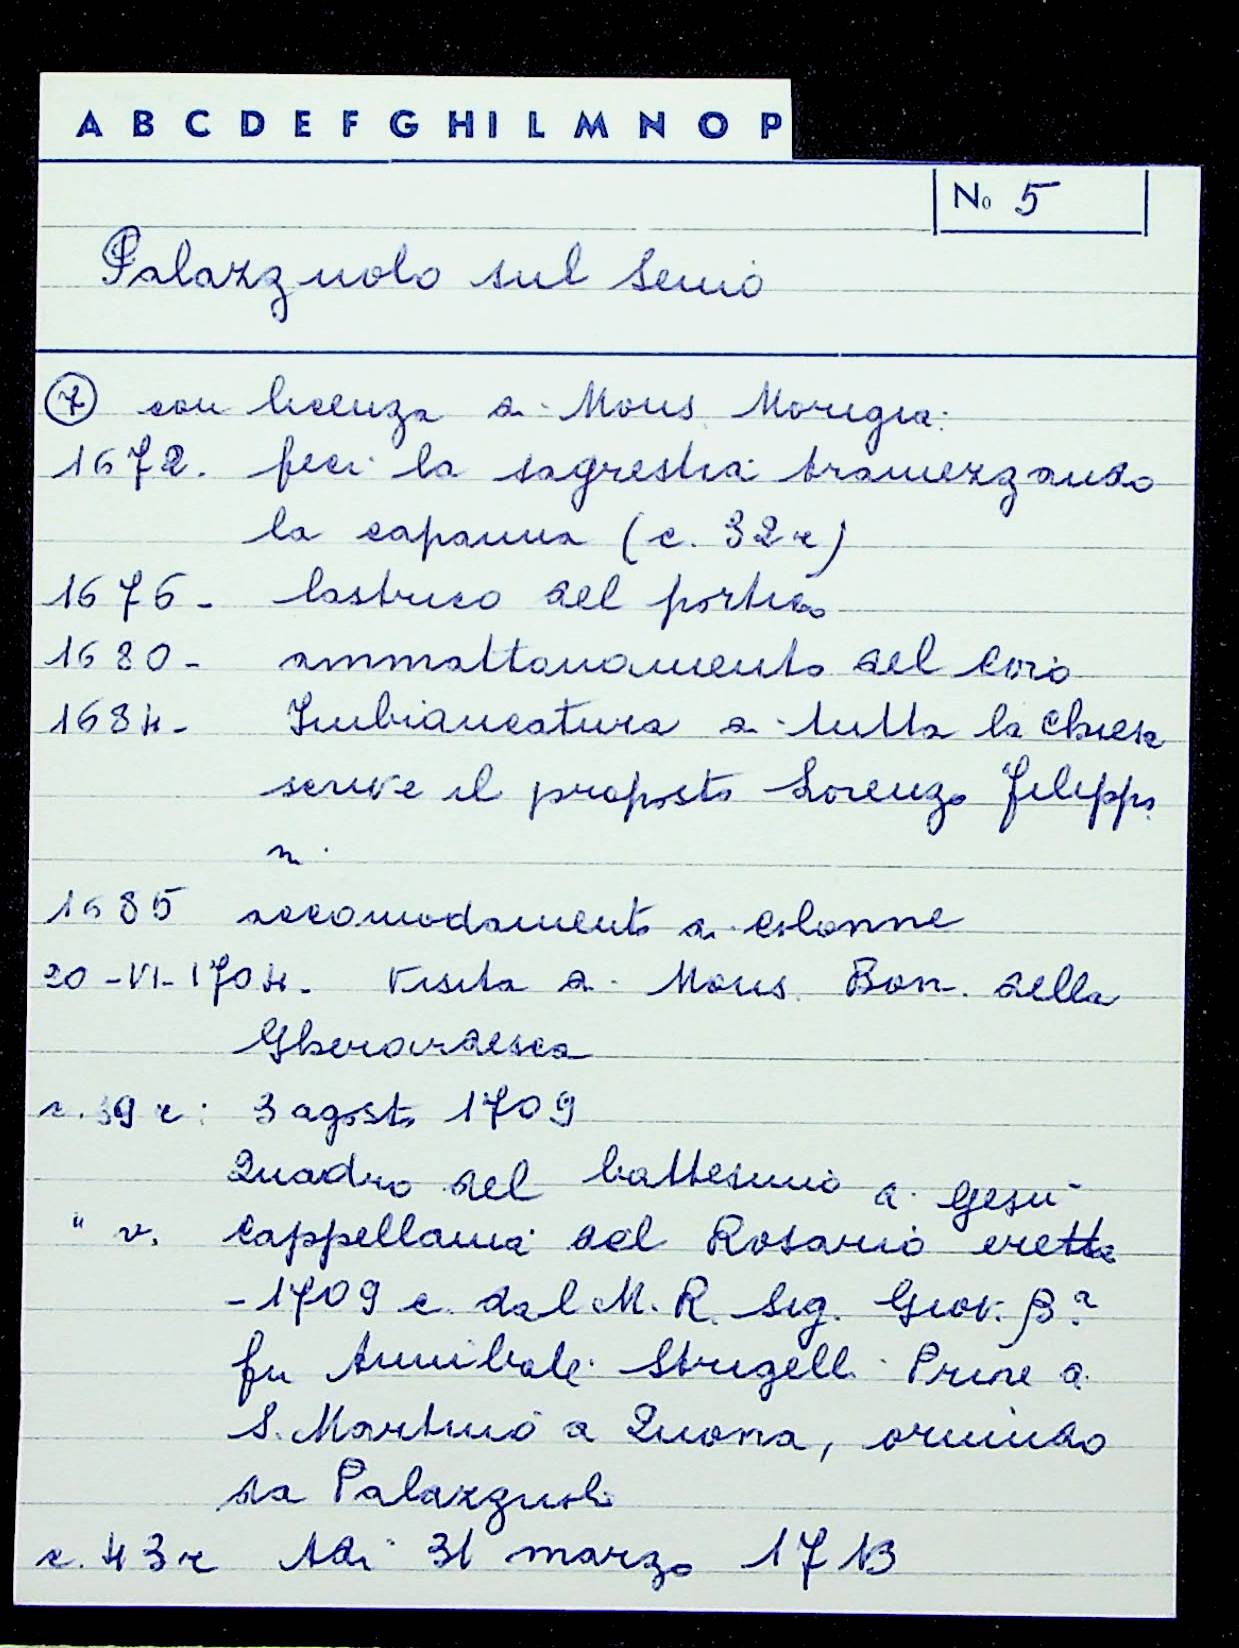 A B C D E F G H I L M N O P
No 5
Palazzuolo sul Senio
7 con licenza di Mons. Morigia.
1672. feci la sagrestia tramezzando
la capanna (c. 32 r)
1676 - lastrico del portico
1680 - ammattonamento del coro
1684 - Imbiancatura di tutta la chiesa
scrive il proposto Lorenzo Filippi
ni.
1685 accomodamento di colonne
20-VI-1704. Visita di Mons. Bon. della
Gherardesca
c. 39 r: 3 agosto 1709
Quadro del battesimo di Gesù
" v. Cappellania del Rosario eretta
- 1709 e. dal M. R. Sig. Giov. B.a
fu Annibale Strigelli Priore di
S. Martino a Quona, oriundo
da Palazzuolo
c. 43 r Adi 31 marzo 1713